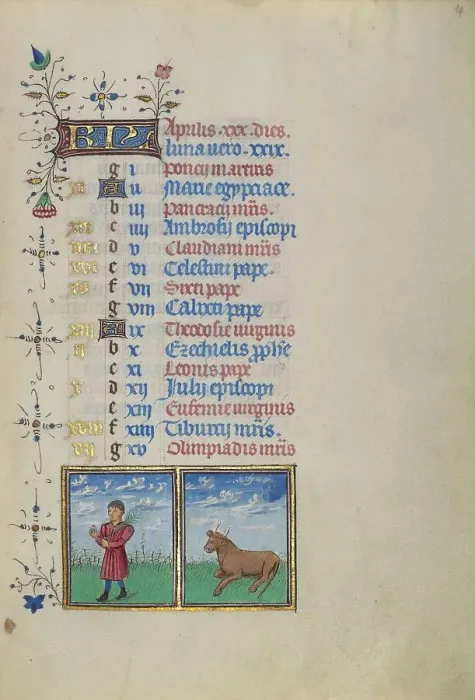 KL Aprilis .xxx. dies.
luna uero .xxix.
g i Poncij martiris
A ii Marie egypciace.
b iii Pancracij mris.
c iiii Ambrosij episcopi
d v Claudiani mris
e vi Celestini pape.
f vii Sixti pape
g viii Calixti pape
xiii A ix Theodosie uirginis
ii b x Ezechielis prophe
c xi Leonis pape
x d xii Julij episcopi
e xiii Eufemie uirginis
xviii f xiiii Tiburcij mris.
vii g xv Olimpiadis mris